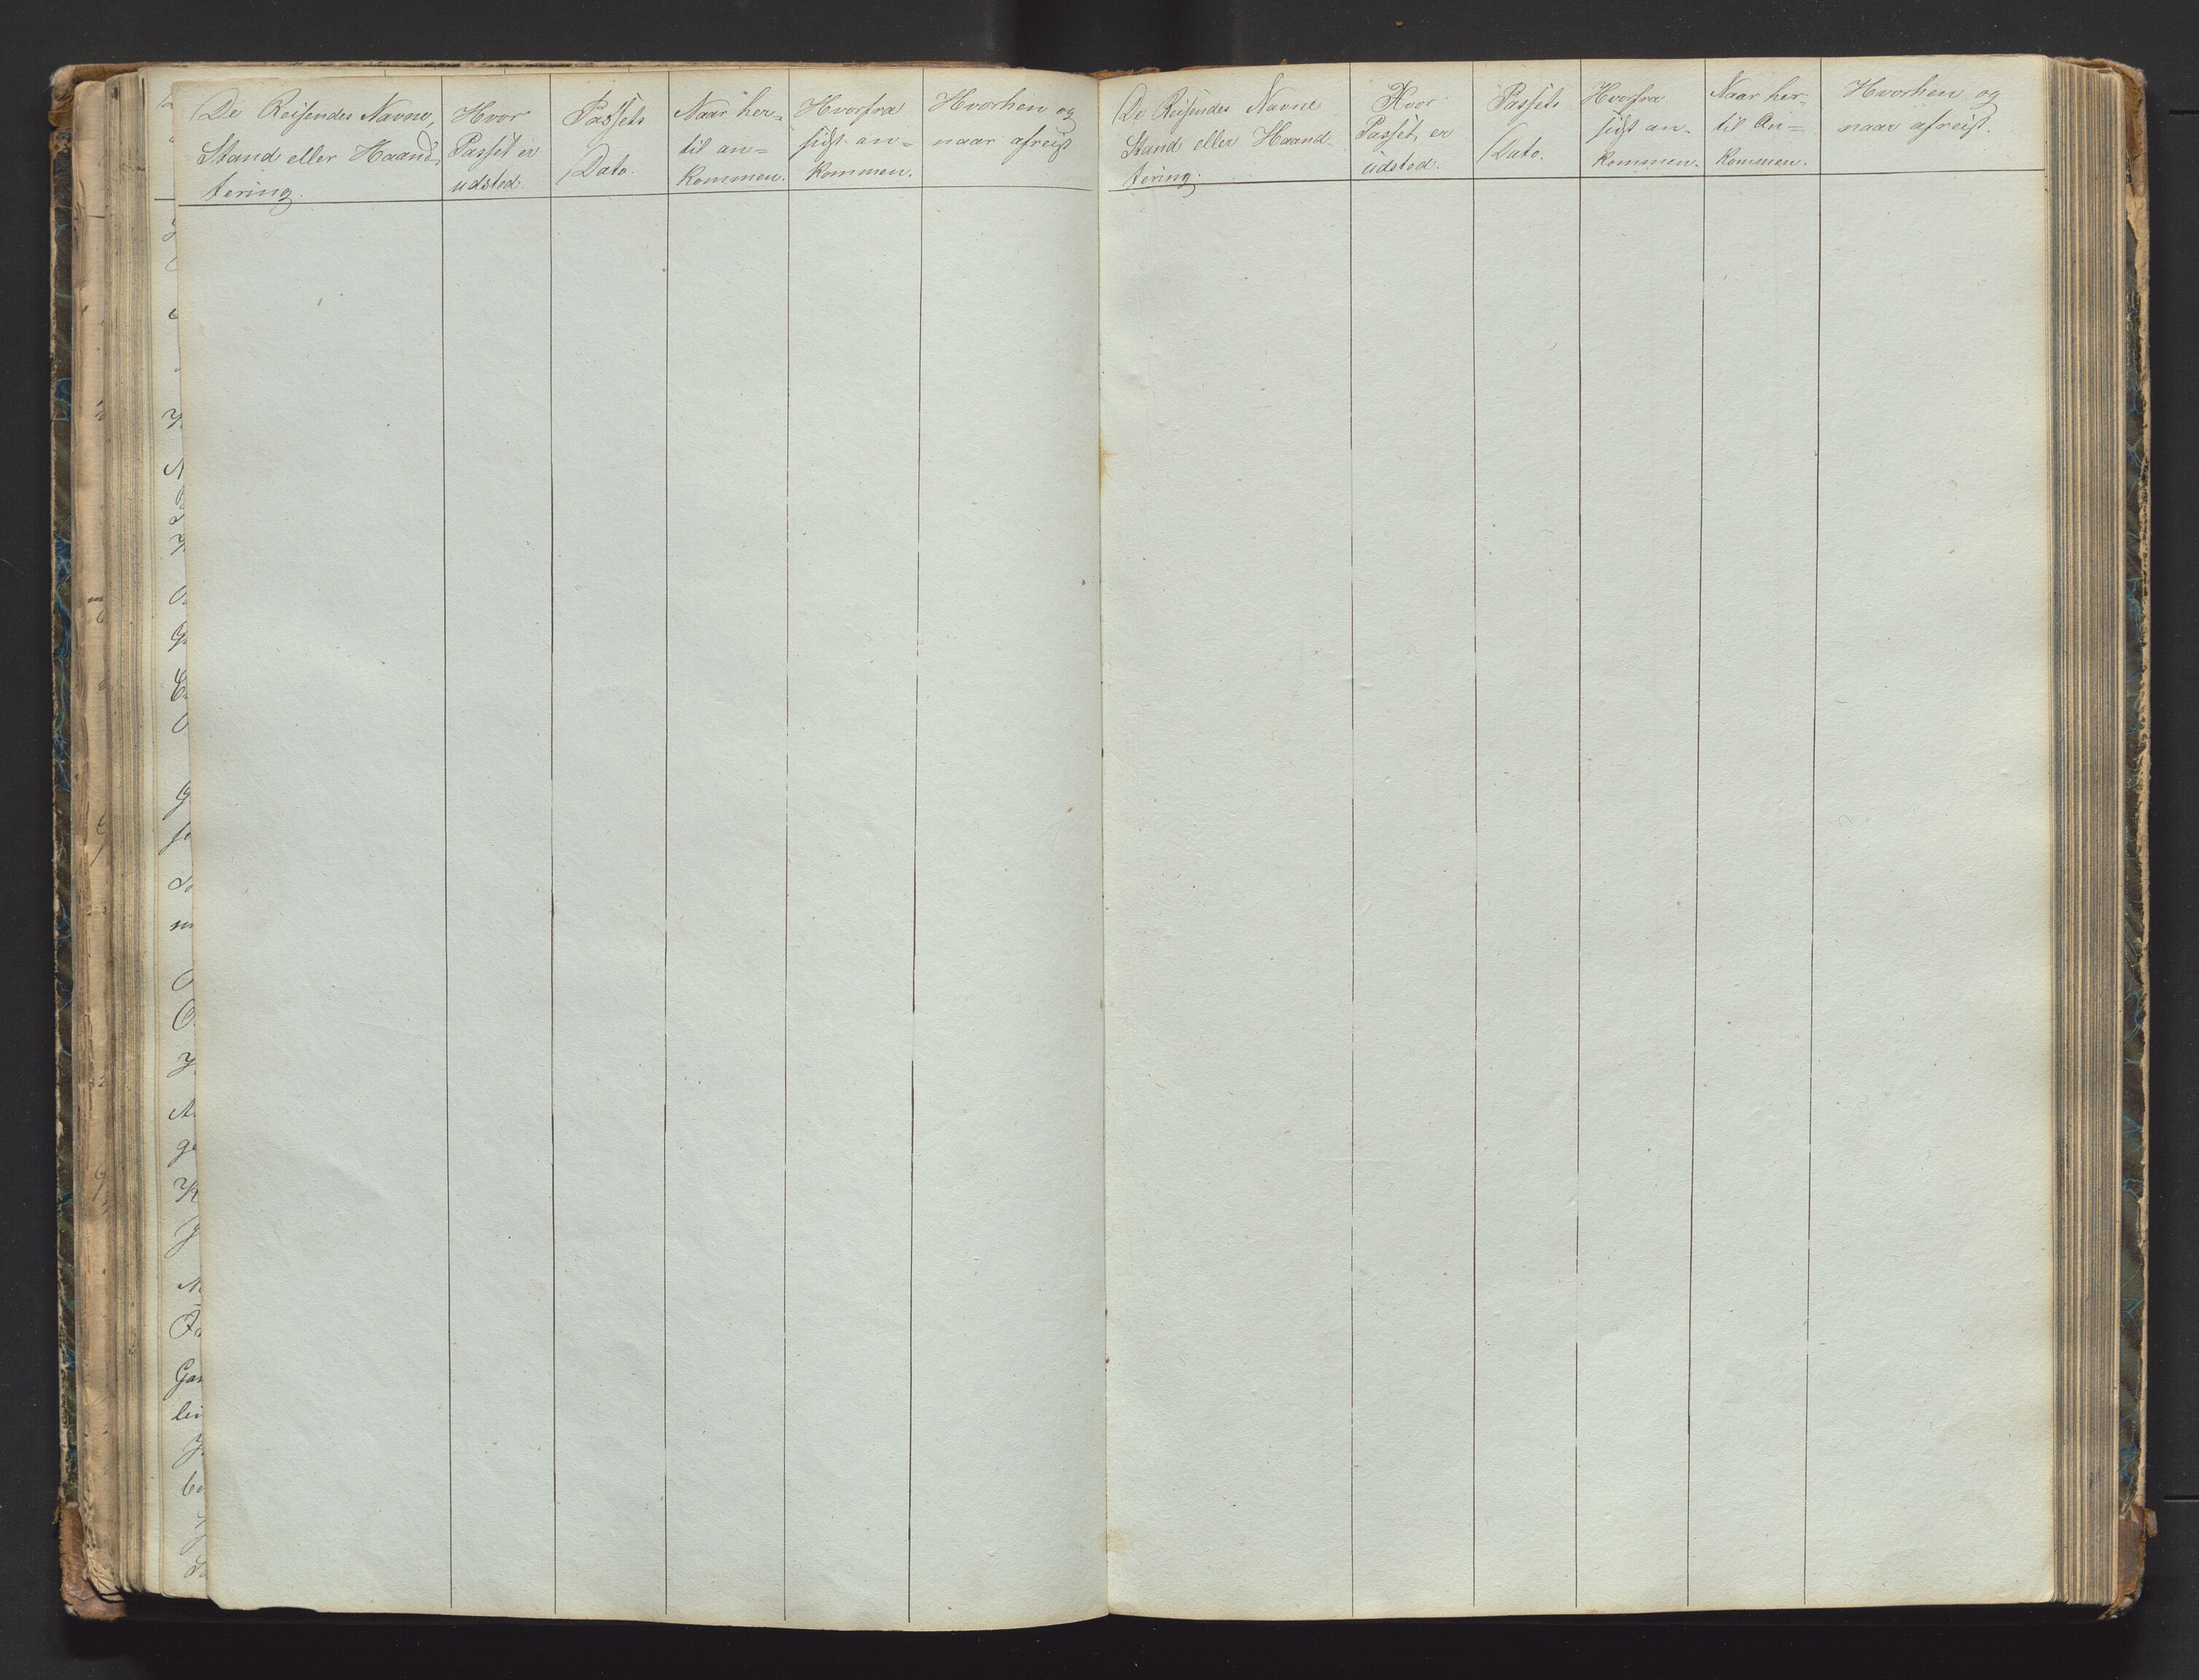 De Reisendes Navne,
Stand eller Haand-
tering.
Hvor
Passet er
udsted
Passets
Dato.
Naar her-
til an=
kommen.
Hvorfra
sidst an=
kommen.
Hvorhen og
naar afreist
De Reisendes Navne
Stand eller Haand-
tering.
Hvor
Passet er
udsted.
Passets
Dato.
Hvorfra
sidst an-
kommen.
Naar her-
til An=
kommen.
Hvorhen og
naar afreist.